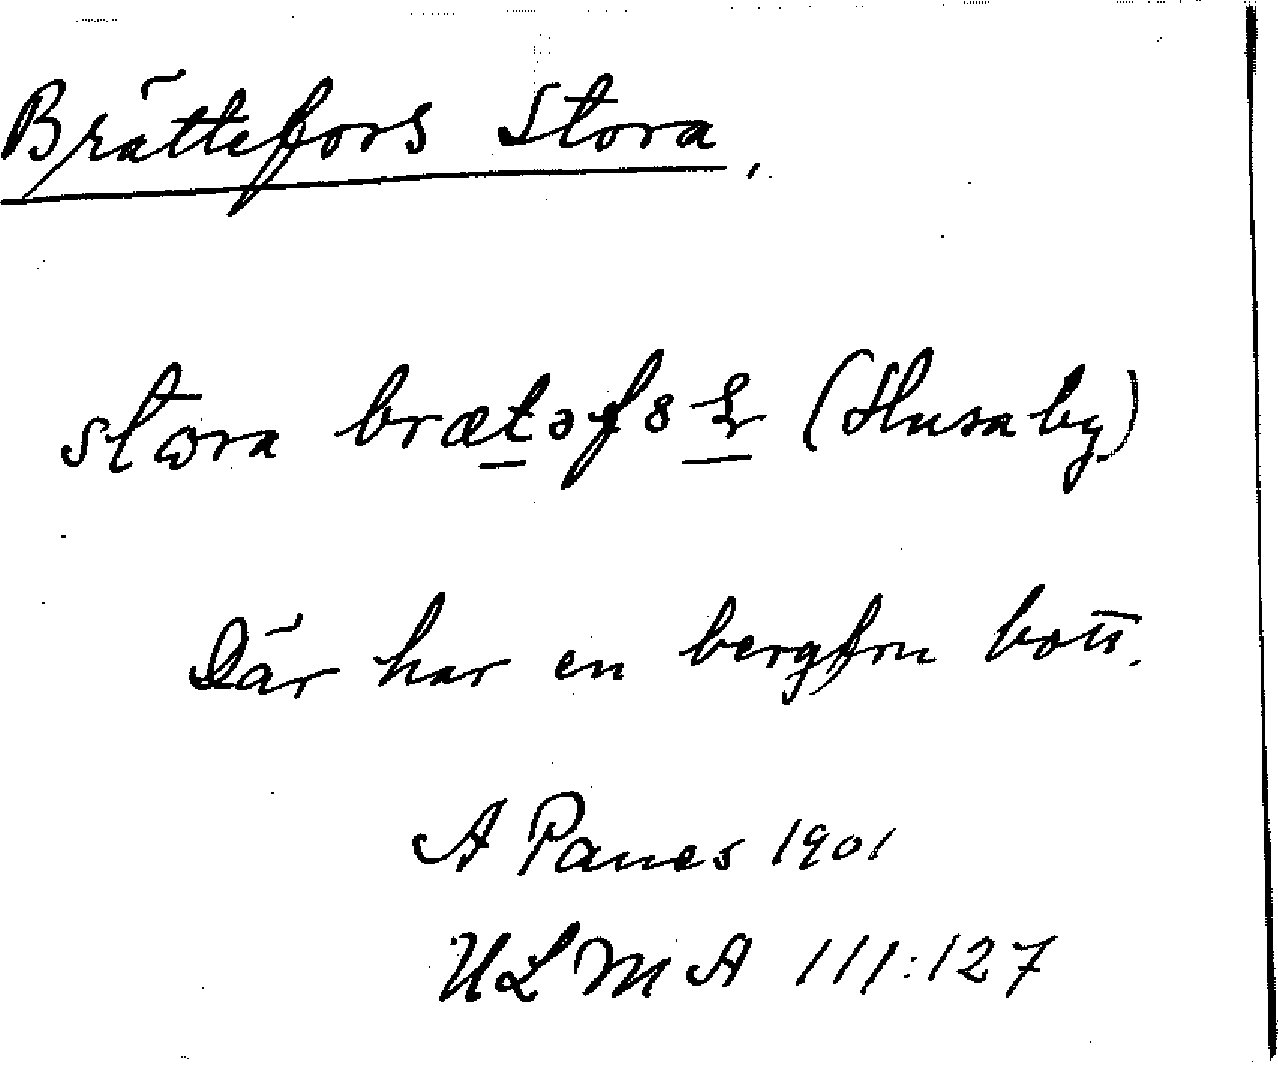 Brättefors Stora,
stora brætəfs (Husaby)
Där har en bergfru bott.
A Panes 1901
ULMA 111:127